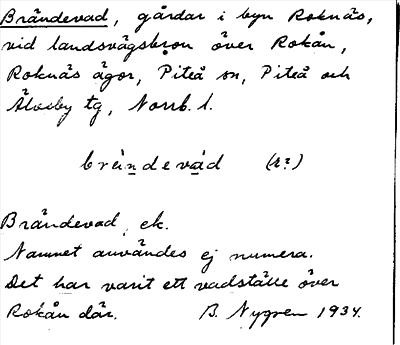 Brändevad, gårdar i byn Roknäs,
vid landsvägsbron över Rokån,
Roknäs ägor, Piteå sn, Piteå och
Älvsby tg, Norrb. l.
Brändevad, ek.
Namnet användes ej numera.
Det har varit ett vadställe över
Rokån där. B. Nygren 1934.